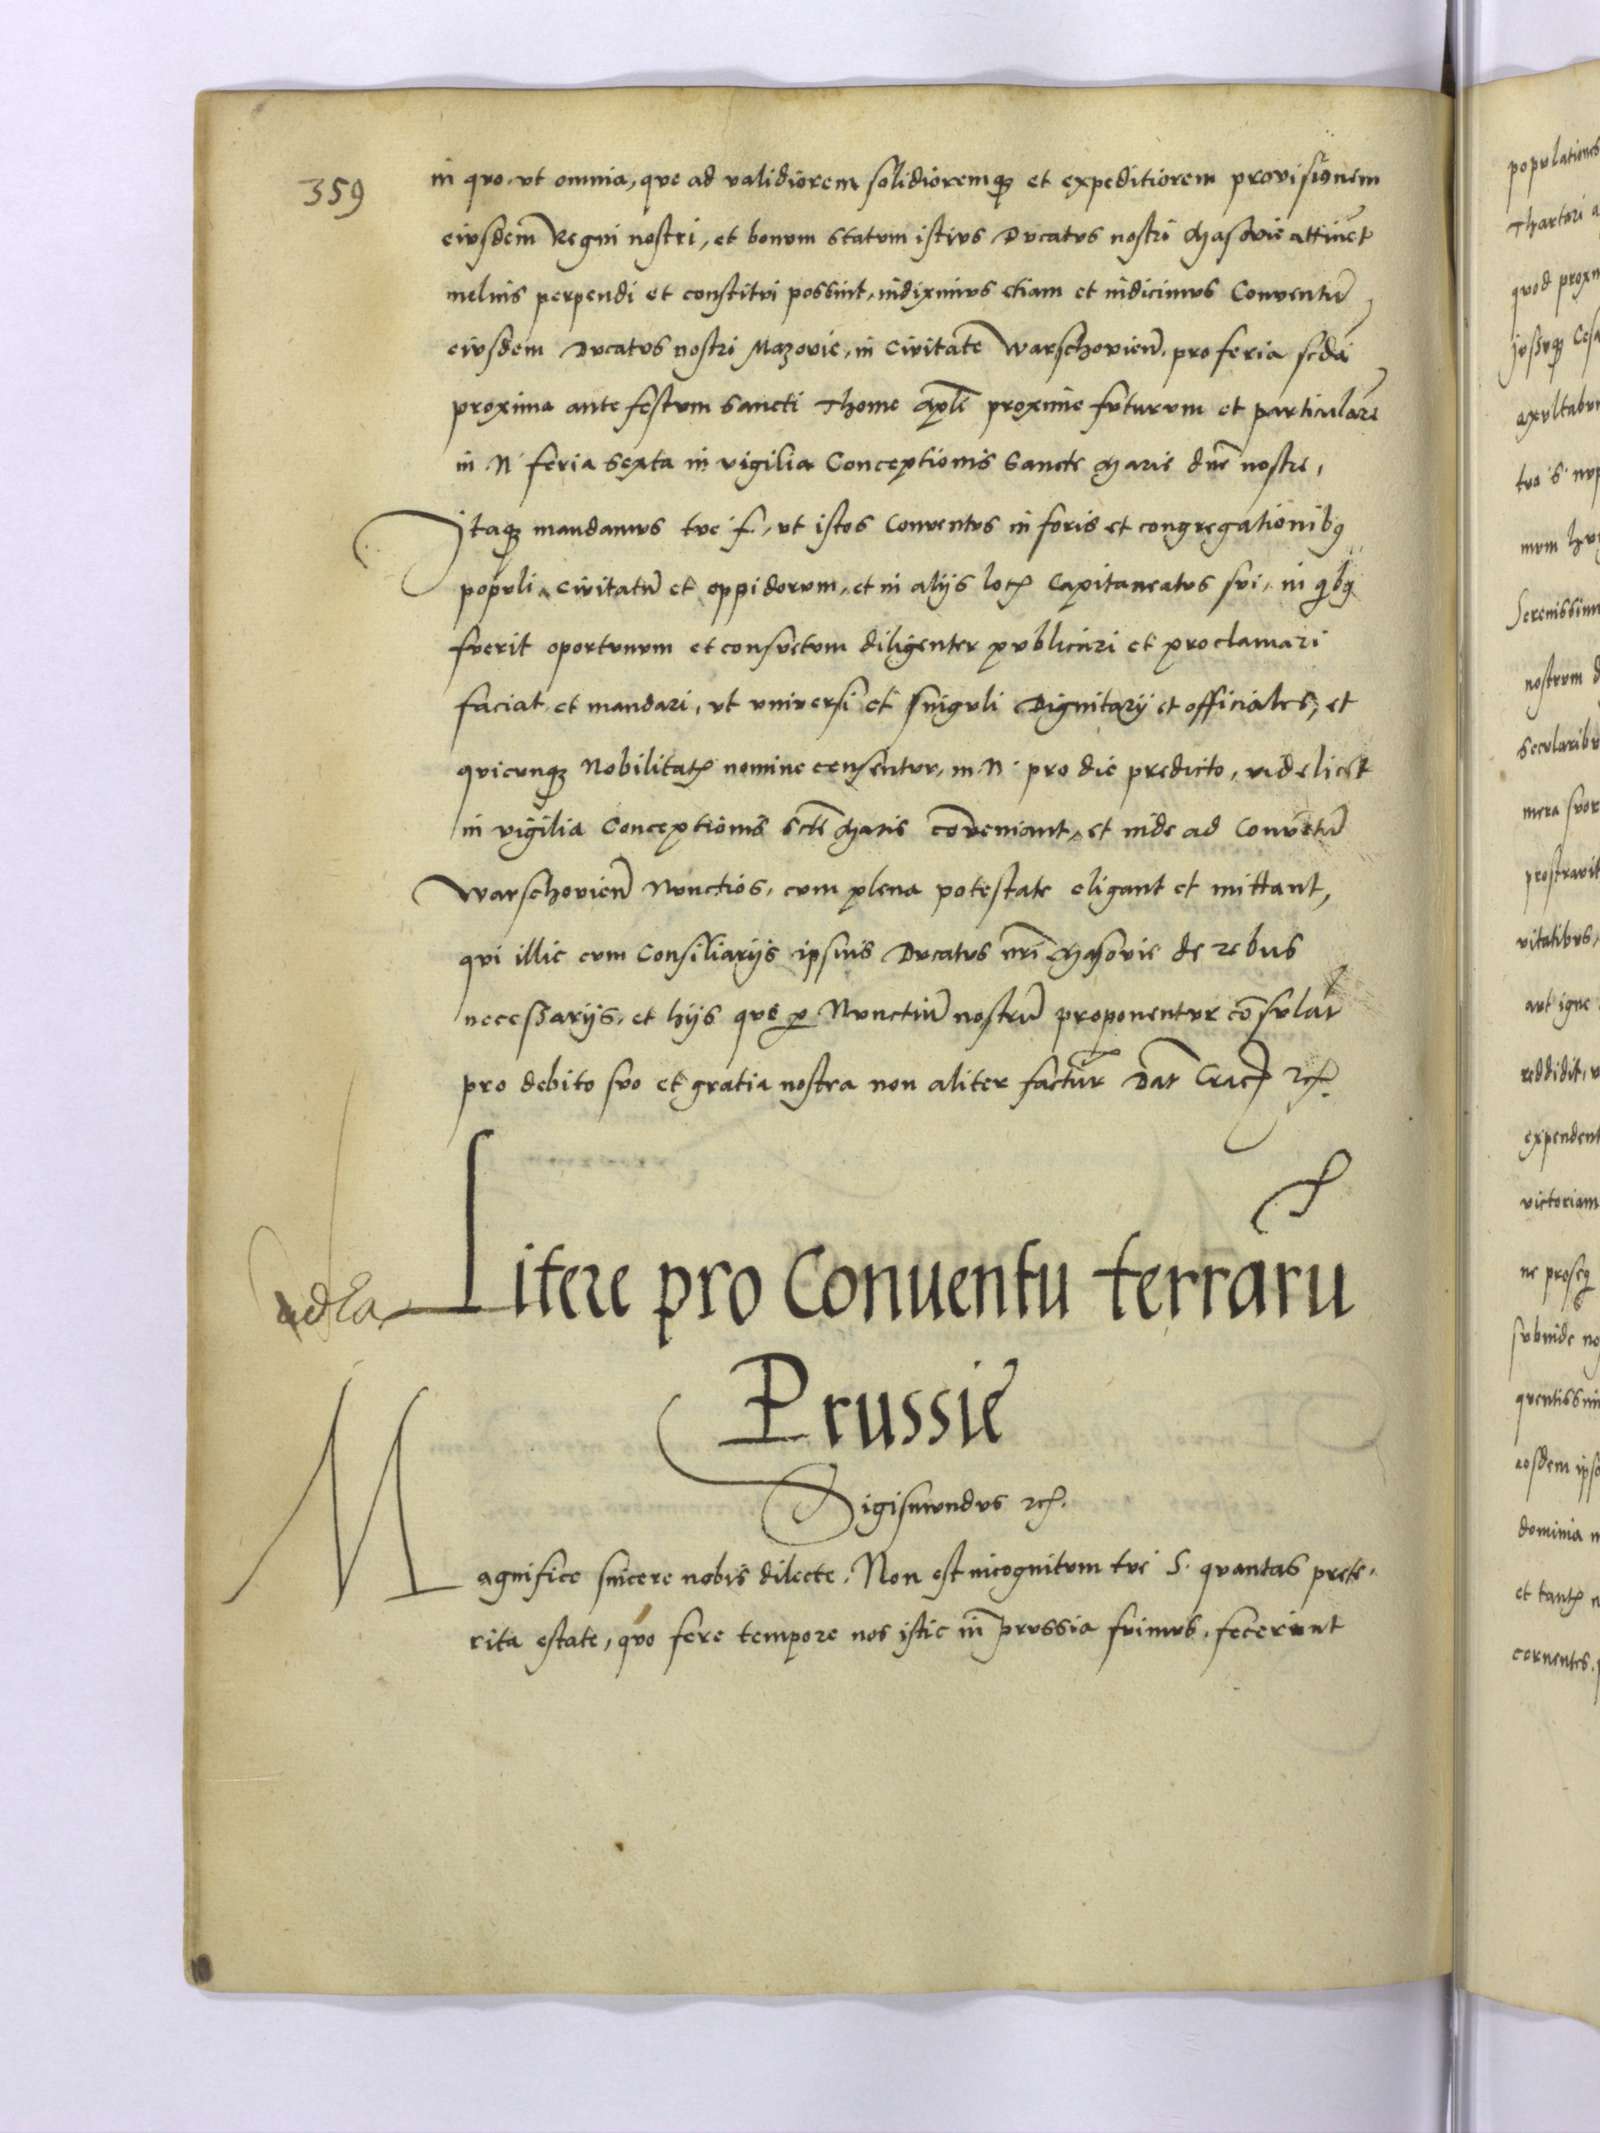 359
in quo, ut omnia, que ad validiorem solidioremq et expeditiorem provisionem
eiusdem Regni nostri, et bonum statum istius Ducatus nostri Masovie attinet
melius perpendi et constitui possint, indiximus etiam et indicimus Conventu
eiusdem Ducatus nostri Mazovie, in Civitate Warschovien, pro feria scda
proxima ante festum Sancti Thome Apli proxime futurum et particulare
in N feria sexta in vigilia Conceptionis Sancte Marie dne nostre,
Itaq mandamus tue f., ut istos Conventus in foris et congregationibq
populi, Civitatu et oppidorum, et in alijs locꝭ Capitaneatus sui, in qbq
fuerit oportunum et consuetum diligenter publicari et proclamari
faciat et mandari, ut universi et singuli Dignitarij et officiales, et
quicunq Nobilitatꝭ nomine censentur, in N. pro die predicto, videlicet
in vigilia Conceptionis Scte Marie conveniant, et inde ad Conventu
Warschovien Nunctios, cum plena potestate eligant et mittant,
qui illic cum Consiliarijs ipsius Ducatus nri Masovie de rebus
necessarijs, et hijs que p Nunctiu nostru proponentur consulat
pro debito suo et gratia nostra non aliter factur Dat Crac ꝛcꝭ.
Litere pro Conventu terraru
Prussie
Sigismundus ꝛcꝭ.
Magnifice sincere nobis dilecte. Non est incognitum tue S. quantas prete,
rita estate, quo fere tempore nos istic in Prussia fuimus, fecerunt
populationes
Thartari a
quod proxi
jussuq Cesa
exultabun
tua S. nup
mum hu
Serenissimu
nostrum d
secularibu
mera suor
prostravit
vitatibus,
aut igne
reddidit, u
expendent
victoriam
ne proseq
subinde no
quentissim
eosdem ipso
dominia n
et tantꝭ n
cernentes, p